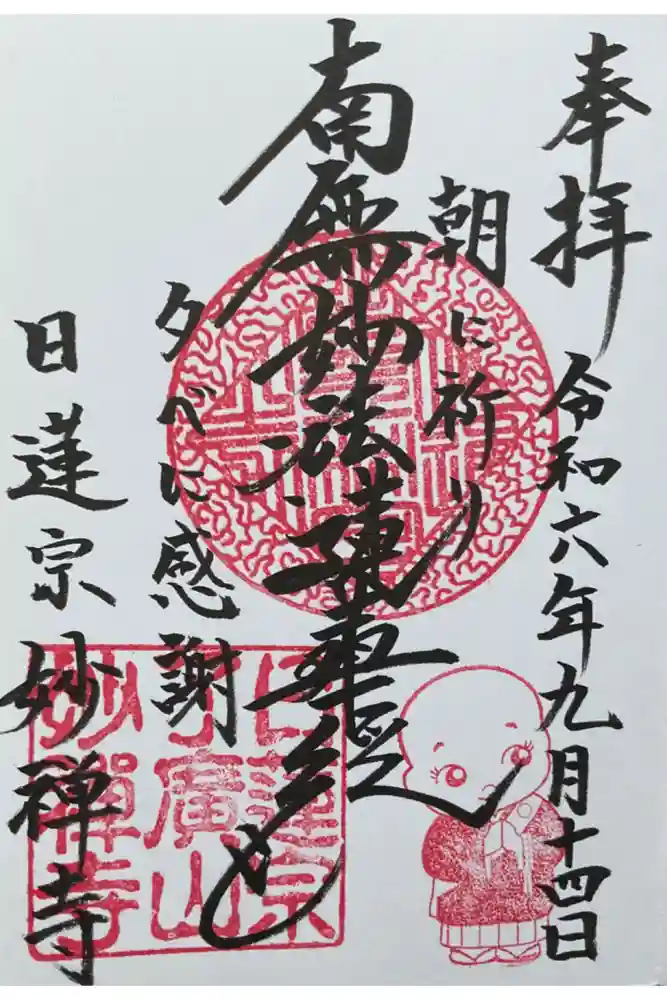 奉拝
令和六年九月十四日
朝に祈り
南無妙法蓮華経
夕べに感謝
日蓮宗
妙禅寺
日蓮宗
廣山
妙禪寺